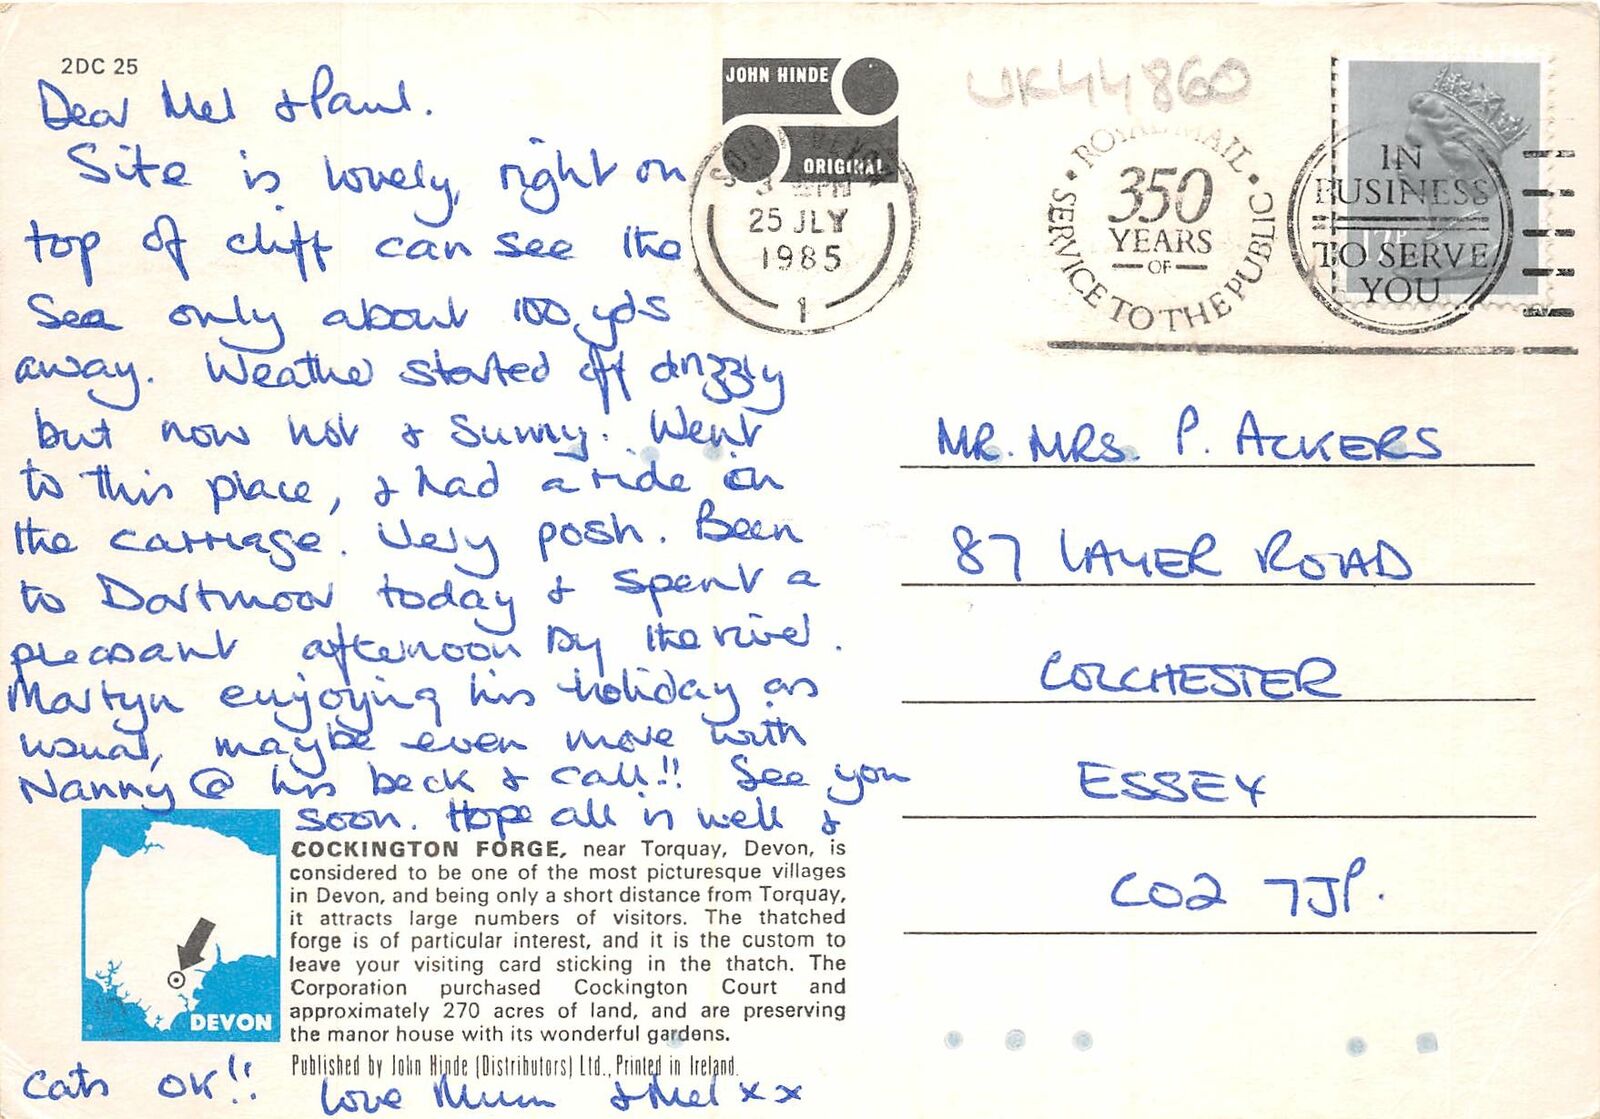 2DC 25
Dear Mel & Paul.
Site is lovely, right on
top of cliff can see the
Sea only about 100 yds
away. Weather started off drizzly
but now hot & Sunny. Went
to this place, & had a ride in
the carriage. Very posh. Been
to Dartmoor today & spent a
pleasant afternoon by the river.
Martyn enjoying his holiday as
usual, maybe even more with
Nanny @ his beck & call!! See you
soon. Hope all is well &
Cats OK!!
Love Mum & Mel x x
JOHN HINDE
ORIGINAL
UK44860
25 JLY
1985
1
ROYAL MAIL
350
YEARS
OF
SERVICE TO THE PUBLIC
IN
BUSINESS
TO SERVE
YOU
MR. MRS. P. ACKERS
87 LAYER ROAD
COLCHESTER
ESSEX
CO2 7JP.
COCKINGTON FORGE, near Torquay, Devon, is
considered to be one of the most picturesque villages
in Devon, and being only a short distance from Torquay,
it attracts large numbers of visitors. The thatched
forge is of particular interest, and it is the custom to
leave your visiting card sticking in the thatch. The
Corporation purchased Cockington Court and
approximately 270 acres of land, and are preserving
the manor house with its wonderful gardens.
DEVON
Published by John Hinde (Distributors) Ltd., Printed in Ireland.